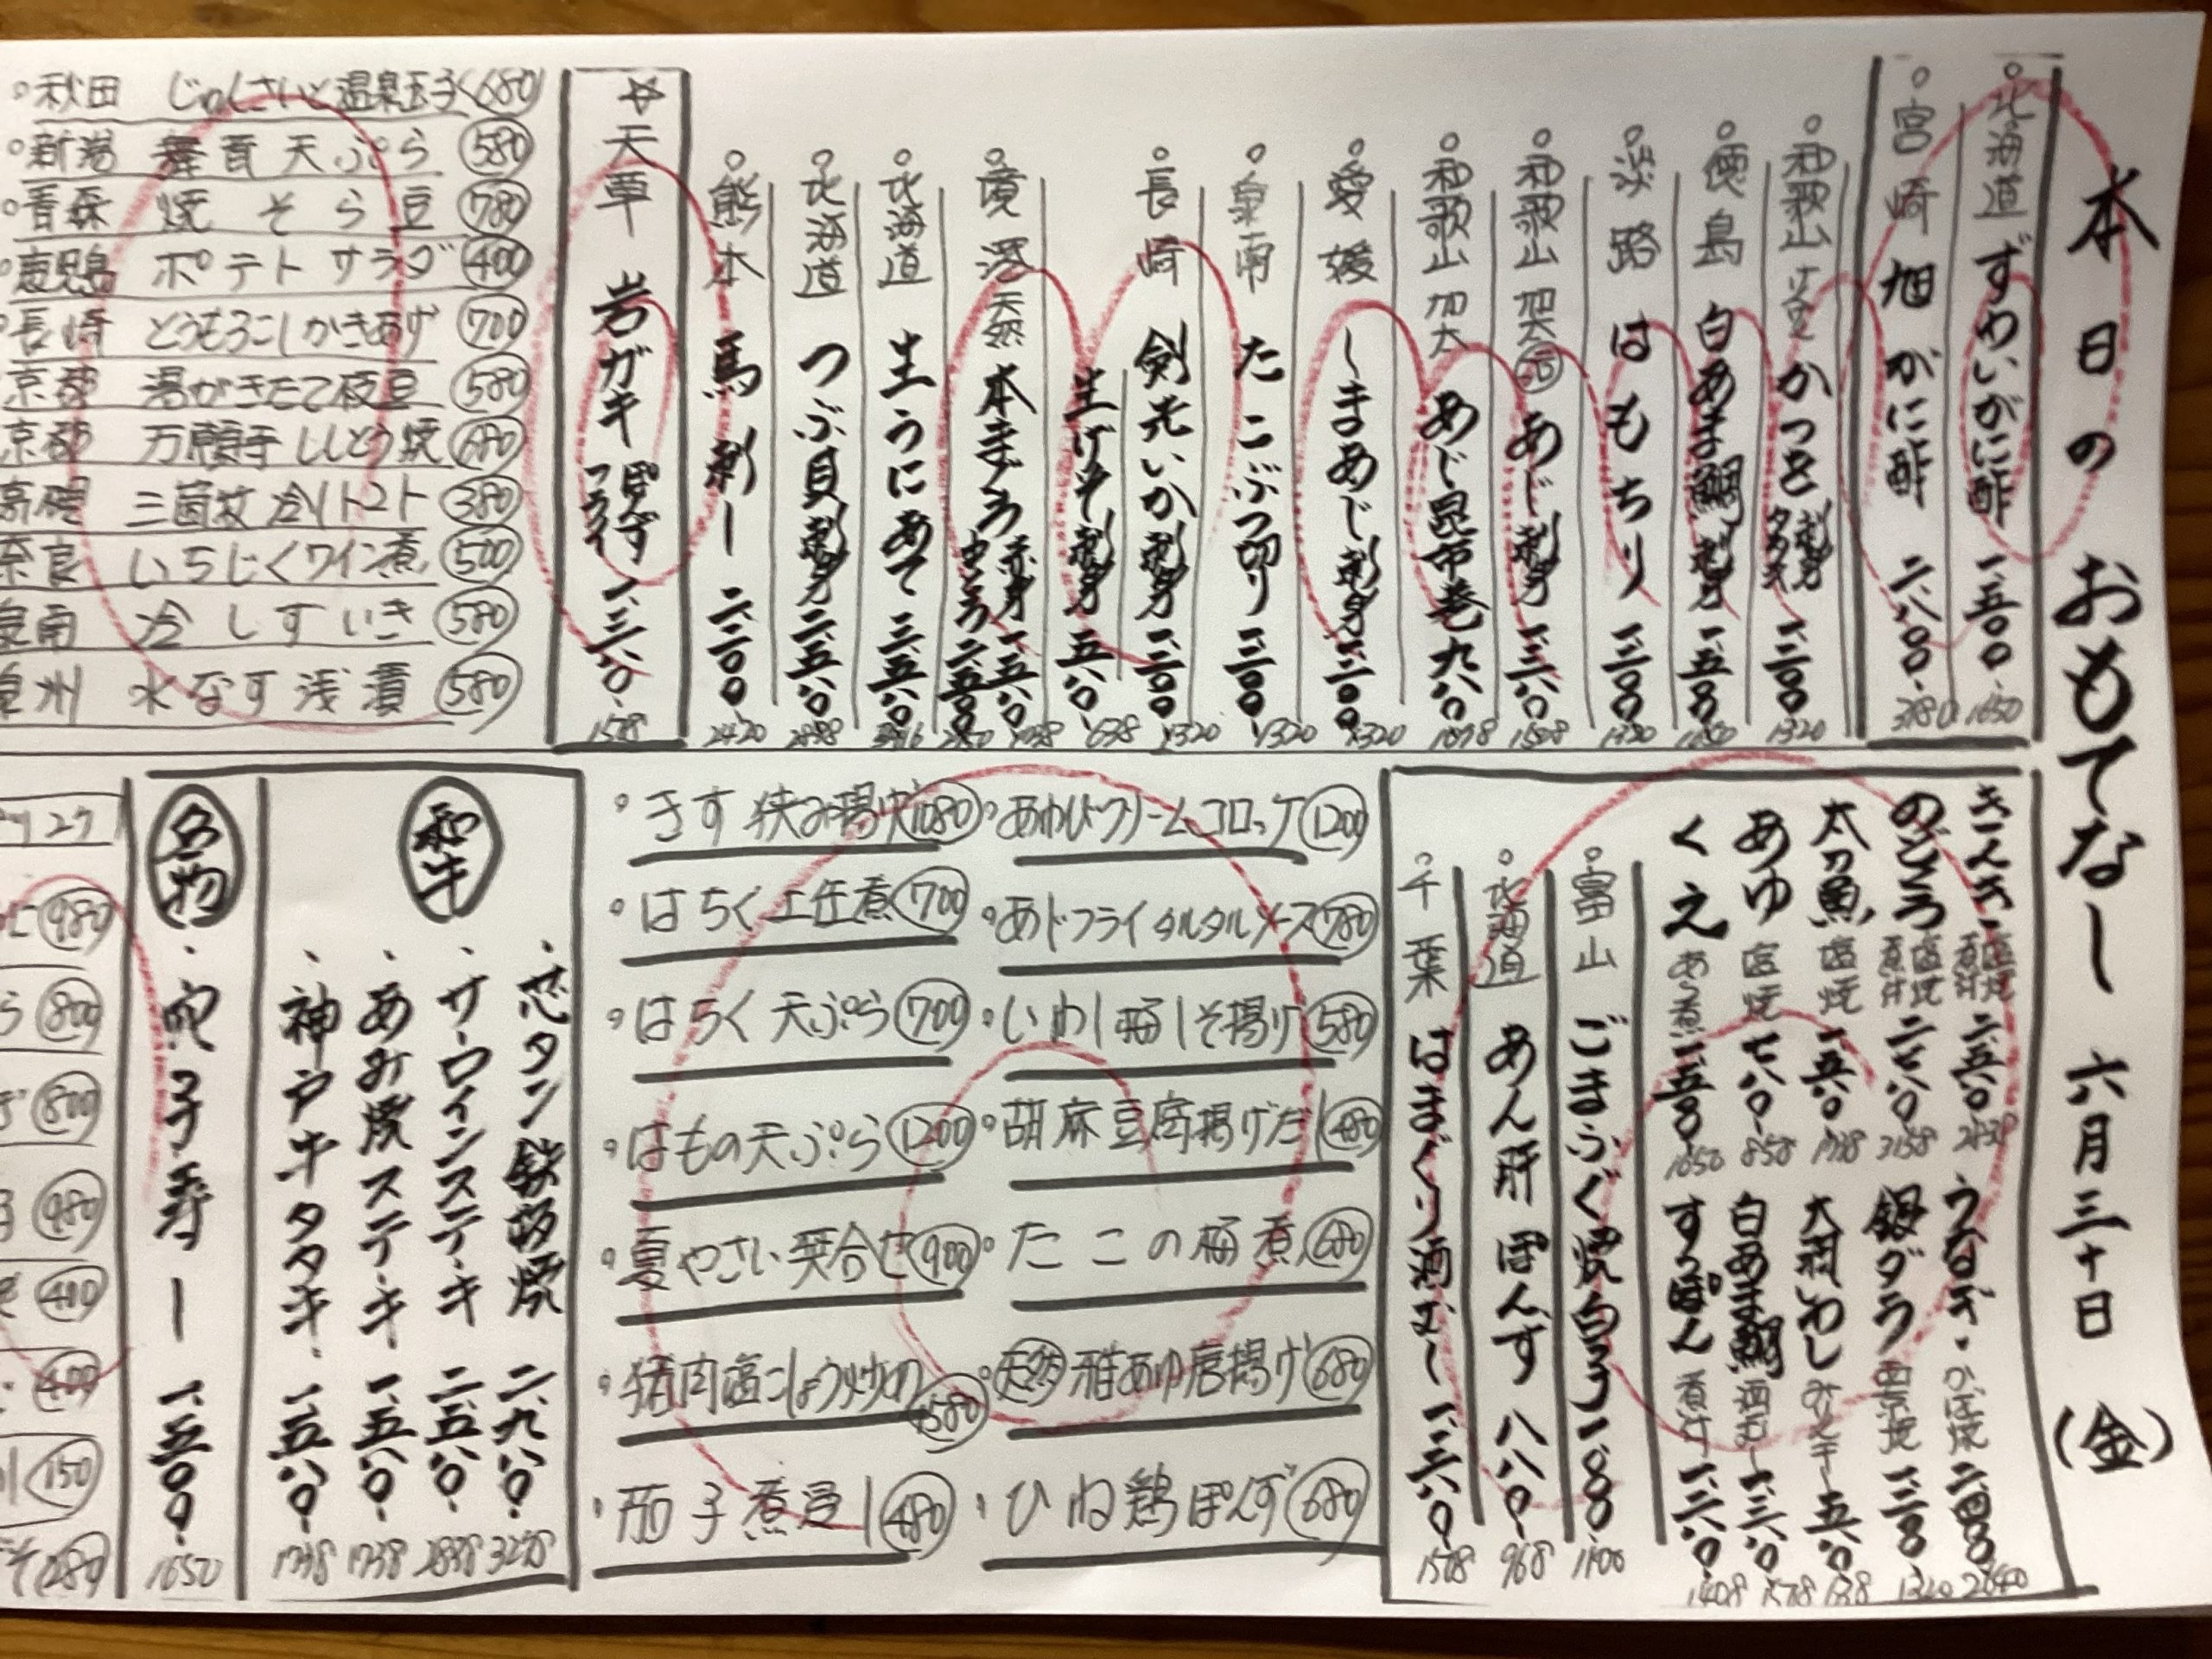 本日の おもてなし 六月三十日 (金)
北海道 ずわいがに酢 一、五〇〇 1650
宮崎 旭がに酢 二、八〇〇
和歌山 かつを 刺身 タタキ 一、二〇〇 1320
徳島 白あま鯛 刺身 一、五〇〇
淡路 はもちり 一、二〇〇 1320
和歌山 加太 あじ 刺身
和歌山 加太 あじ昆布巻 九八〇 1078
愛媛 しまあじ 刺身 一、二〇〇 1320
泉南 たこぶつ切り 一、二〇〇 1320
長崎 剣先いか刺身 一、二〇〇 1320
生げそ刺身 五八〇 638
境港 天然 本まぐろ 赤身 一、五八〇 中とろ
北海道 生うにあて
北海道 つぶ貝刺身
熊本 馬刺し 二、二〇〇 2420
☆天草 岩ガキ ぽん酢 フライ
秋田 じゅんさいと温泉玉子 680
新潟 舞茸天ぷら 580
青森 焼そら豆 780
鹿児島 ポテトサラダ 400
長崎 とうもろこしかきあげ 700
京都 湯がきたて枝豆 580
京都 万願寺ししとう焼 680
高槻 三箇牧冷しトマト 380
奈良 いちじくワイン煮 500
泉南 冷しずいき 580
泉州 水なす浅漬 580
きんき 塩焼 煮汁
のどぐろ 塩焼 煮汁
太刀魚 塩焼
あゆ 塩焼 七八〇 858
くえ あら煮 一、五〇〇 1650
うなぎ かば焼 二、四〇〇 2640
銀ダラ 西京焼 一、二〇〇 1320
大羽いわし
白あま鯛 酒むし
すっぽん 煮汁
富山 ごまふぐ焼白子 一、〇〇〇 1100
北海道 あん肝ぽんず 八八〇 968
千葉 はまぐり酒むし
あわびクリームコロッケ 1200
あじフライタルタルソース 780
いわし梅しそ揚げ 580
胡麻豆腐揚げだし 480
たこの梅煮 680
天然 稚あゆ唐揚げ 680
ひね鶏ぽんず 680
きす狭み揚げ 1080
はちく土佐煮 700
はちく天ぷら 700
はもの天ぷら 1200
夏やさい炊合せ 900
猪肉塩こしょう炒め 1580
茄子煮浸し 480
和牛
芯タン鉄板焼 二、九八〇 3278
サーロインステーキ 二、五八〇 2838
あみ焼ステーキ 一、五八〇 1738
神戸牛タタキ 一、五八〇 1738
名物
穴子寿し 一、五〇〇 1650
980
800
800
980
400
400
150
280